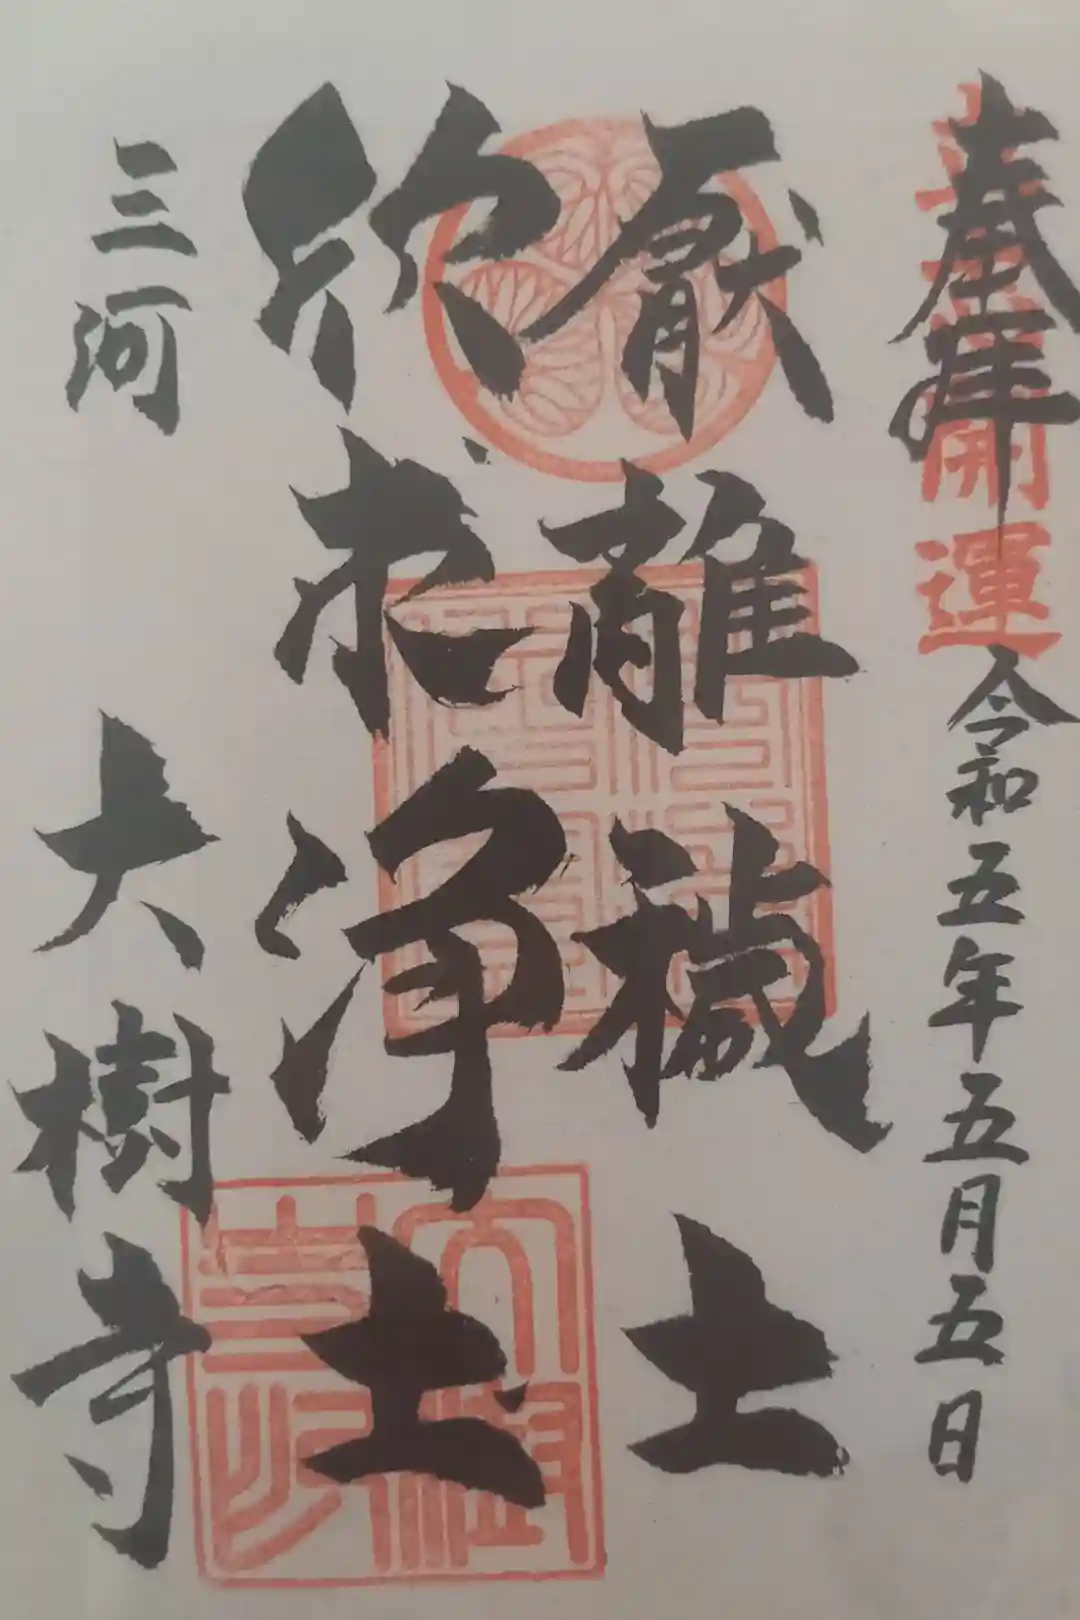 奉拝
開運
令和五年五月五日
厭離穢土
欣求浄土
三河
大樹寺